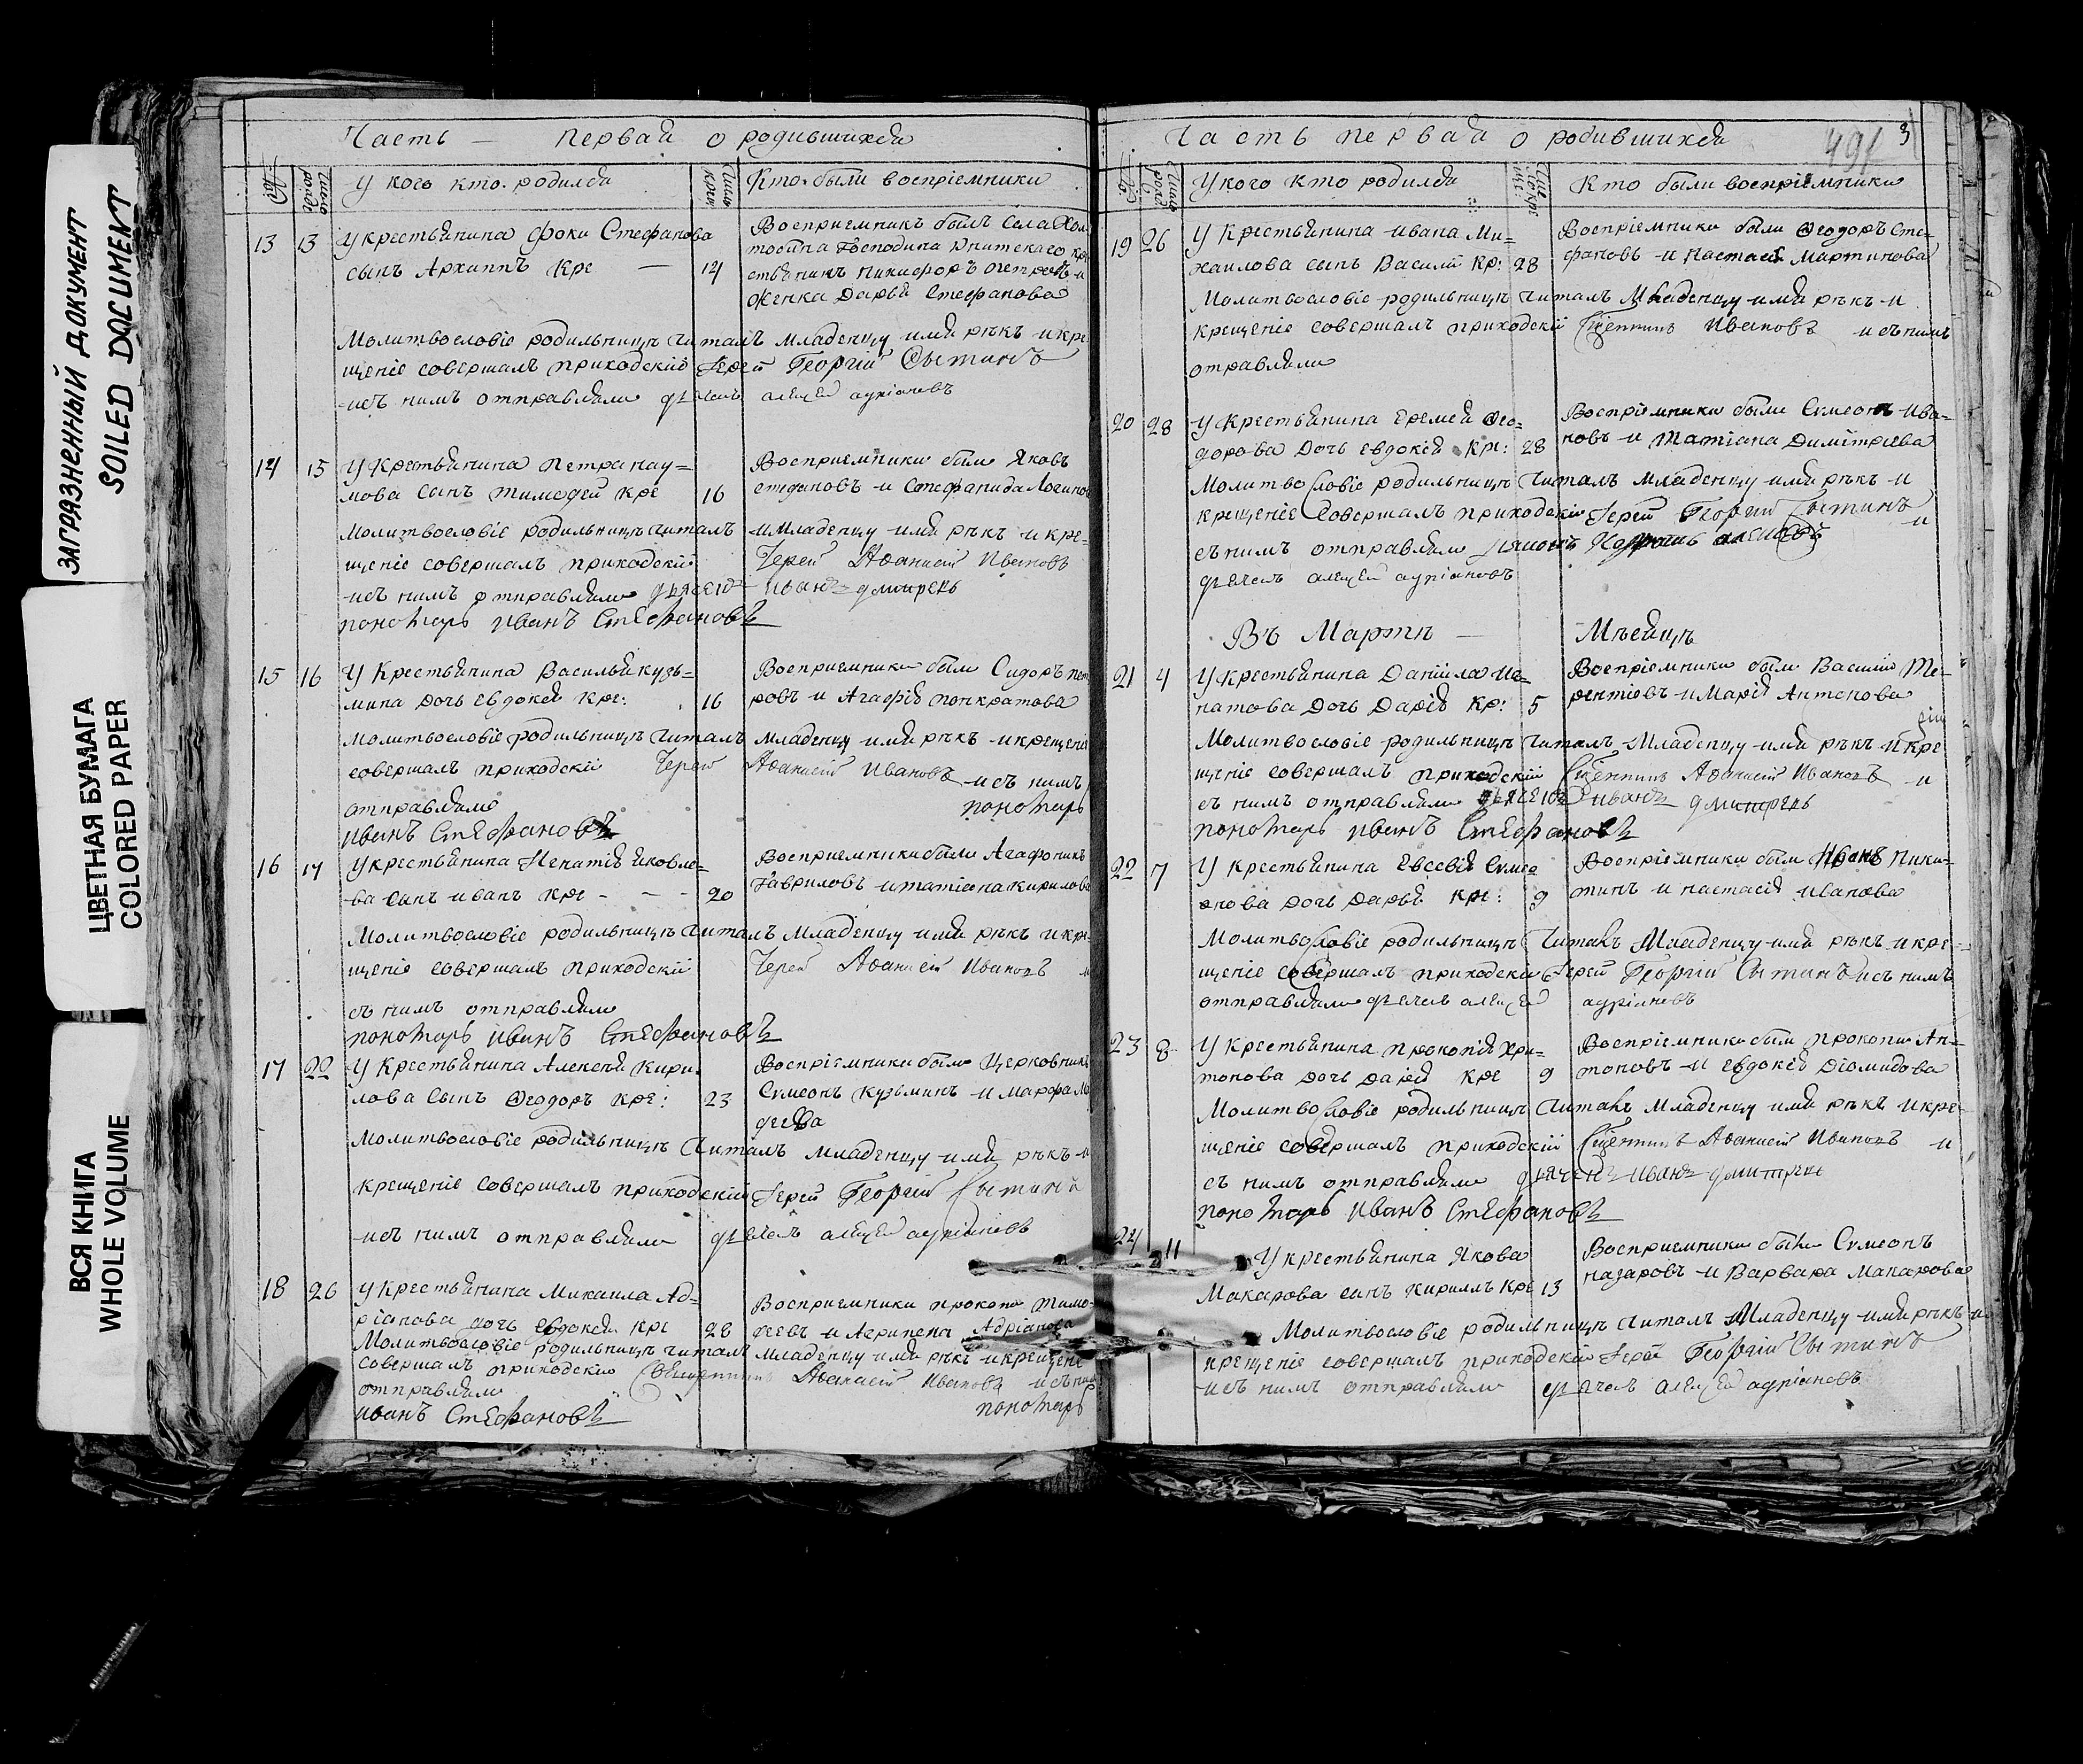 ЗАГРЯЗНЕННЫЙ ДОКУМЕНТ
SOILED DOCUMENT
ЦВЕТНАЯ БУМАГА
COLORED PAPER
ВСЯ КНИГА
WHOLE VOLUME
Часть — первая о родившихся
У кого кто родился
Кто были воспріемники
13 13 У крестьянина Фоки Стефанова
сынъ Архиппъ кре — 14
Восприемникъ былъ села
Господина
Никифоръ Петровъ и
женка Дарья Стефанова
Молитвословіе родильницѣ читалъ младенцу имя рѣкъ и кре
щеніе совершалъ приходскій Іерей Георгій Сытинъ
и съ нимъ отправляли дьячекъ алеѯей адріановъ
14 15 У крестьянина Петра Нау=
мова сынъ Тимофей кре 16
Восприемники были Яковъ
Степановъ и Стефанида Логинов
Молитвословіе родильницѣ читалъ и младенцу имя рѣкъ и кре=
щеніе совершалъ приходскій Іерей Аѳанасій Ивановъ
и съ нимъ отправляли дьячекъ иванъ дмитревъ
пономарь иванъ Стефановъ
15 16 У крестьянина Василья Кузь=
мина дочь Евдокея кре: 16
Восприемники были Сидоръ Пет
ровъ и Агафія Понкратова
Молитвословіе родильницѣ читалъ младенцу имя рѣкъ и крещеніе
совершалъ приходскій Іерей Аѳанасій Ивановъ и съ нимъ
отправляли пономарь
иванъ Стефановъ
16 17 У крестьянина Игнатія Яковле=
ва сынъ Иванъ кре - - - 20
Восприемники были Агафоникъ
Гавриловъ и Татіана Кирилова
Молитвословіе родильницѣ читалъ младенцу имя рѣкъ и кре
щеніе совершалъ приходскій Іерей Аѳанасій Ивановъ и
съ нимъ отправляли
пономарь иванъ Стефановъ
17 22 У крестьянина Алексѣя Кири
лова сынъ Ѳеодоръ кре: 23
Воспріемники были церковникъ
Сѵмеонъ Кузьминъ и Марфа
Молитвословіе родильницѣ читалъ младенцу имя рѣкъ и
крещеніе совершалъ приходскій Іерей Георгій Сытинъ
и съ нимъ отправляли дьячекъ алеѯей адріановъ
18 26 У крестьянина Михаила Ад=
ріанова дочь Евдокея кре 28
Восприемники Прокопи Тимо
феевъ и Агрипена Адріанова
Молитвословіе родильницѣ читалъ младенцу имя рѣкъ и крещеніе
совершалъ приходскій Священникъ Аѳанасій Ивановъ и съ ним
отправляли пономарь
иванъ Стефановъ
Часть первая о родившихся
491 3
У кого кто родился
Кто были воспріемники
19 26 У крестьянина Ивана Ми=
хаилова сынъ Василій кр: 28
Воспріемники были Ѳеодоръ Сте=
фановъ и Настасія Мартинова
Молитвословіе родильницѣ читалъ младенцу имя рѣкъ и
крещеніе совершалъ приходскій Сщенникъ Ивановъ и съ нимъ
отправляли
20 28 У крестьянина Еремея Ѳео=
дорова дочь Евдокія кре: 28
Воспріемники были Сѵмеонъ Ива=
новъ и Татіана Димітріева
Молитвословіе родильницѣ читалъ младенцу имя рѣкъ и
крещеніе совершалъ приходскій Іерей Георгій Сытинъ и
съ нимъ отправляли
дьячекъ алеѯей адріановъ
Въ Мартѣ — Мѣсяцѣ
21 4 У крестьянина Даніила Иг=
натова дочь Дарія кр: 5
Воспріемники были Василій Те=
рентіевъ и Марія Антонова
Молитвословіе родильницѣ читалъ младенцу имя рѣкъ и кре
щеніе совершалъ приходскій Сщенникъ Аѳанасій Ивановъ и
съ нимъ отправляли дьячекъ иванъ дмитревъ
пономарь иванъ Стефановъ
22 7 У крестьянина Евсевія Сѵме
онова дочь Дарья кре: 9
Воспріемники были Иванъ Ники=
тинъ и Настасія Иванова
Молитвословіе родильницѣ читалъ младенцу имя рѣкъ и кре=
щеніе совершалъ приходскій Іерей Георгій Сытинъ и съ нимъ
отправляли дьячекъ алеѯей адріановъ
23 8 У крестьянина Прокопія Хри=
тонова дочь Дарія кре 9
Воспріемники были Прокопи Ан=
тоновъ и Евдокія Діомидова
Молитвословіе родильницѣ читалъ младенцу имя рѣкъ и кре=
щеніе совершалъ приходскій Сщенникъ Аѳанасій Ивановъ и
съ нимъ отправляли дьячекъ иванъ дмитрев
пономарь иванъ Стефановъ
24 11 У крестьянина Якова
Макарова сынъ Кирилъ кре 13
Восприемники были Сѵмеонъ
Назаровъ и Варвара Макарова
Молитвословіе родильницѣ читалъ младенцу имя рѣкъ и
крещеніе совершалъ приходскій Іерей Георгій Сытинъ
и съ нимъ отправляли дьячекъ алеѯей адріановъ